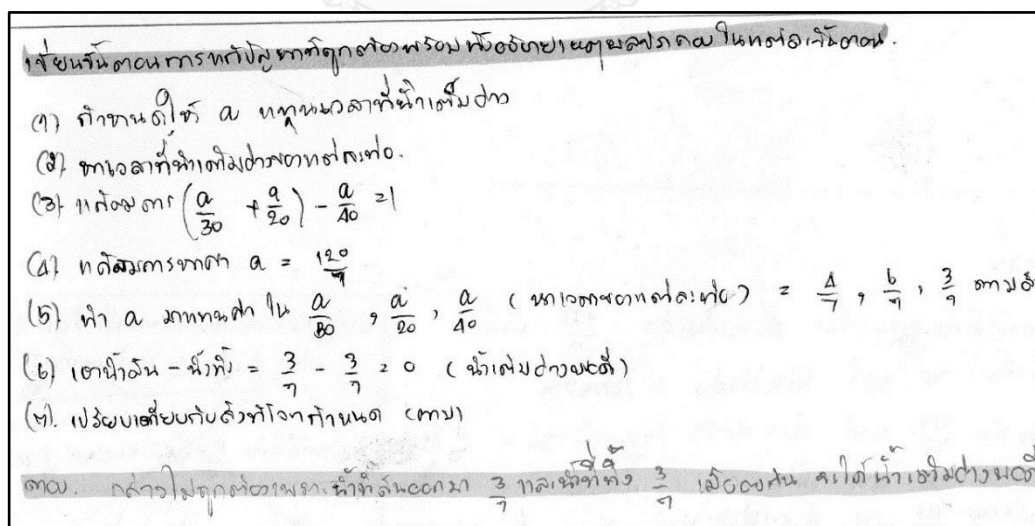 เขียนขั้นตอนการแก้ปัญหาที่ถูกต้องพร้อมทั้งอธิบายเหตุผลประกอบในแต่ละขั้นตอน.
(1) กำหนดให้ a แทนเวลาที่น้ำเต็มอ่าง
(2) หาเวลาที่น้ำเติมอ่างของแต่ละท่อ.
(3) แก้สมการ (a/30 + a/20) - a/40 = 1
(4) แก้สมการหาค่า a = 120/7
(5) นำ a มาแทนค่าใน a/30 , a/20 , a/40 (หาเวลาของแต่ละท่อ) = 4/7 , 6/7 , 3/7 ตาม
(6) เอาน้ำล้น - น้ำทิ้ง = 3/7 - 3/7 = 0 (น้ำเต็มอ่างพอดี)
(7). เปรียบเทียบกับสิ่งที่โจทย์กำหนด (ตอบ)
ตอบ. กล่าวไม่ถูกต้องเพราะน้ำที่ล้นออกมา 3/7 และน้ำที่ทิ้ง 3/7 เมื่อลบกัน จะได้น้ำเต็มอ่างพอดี